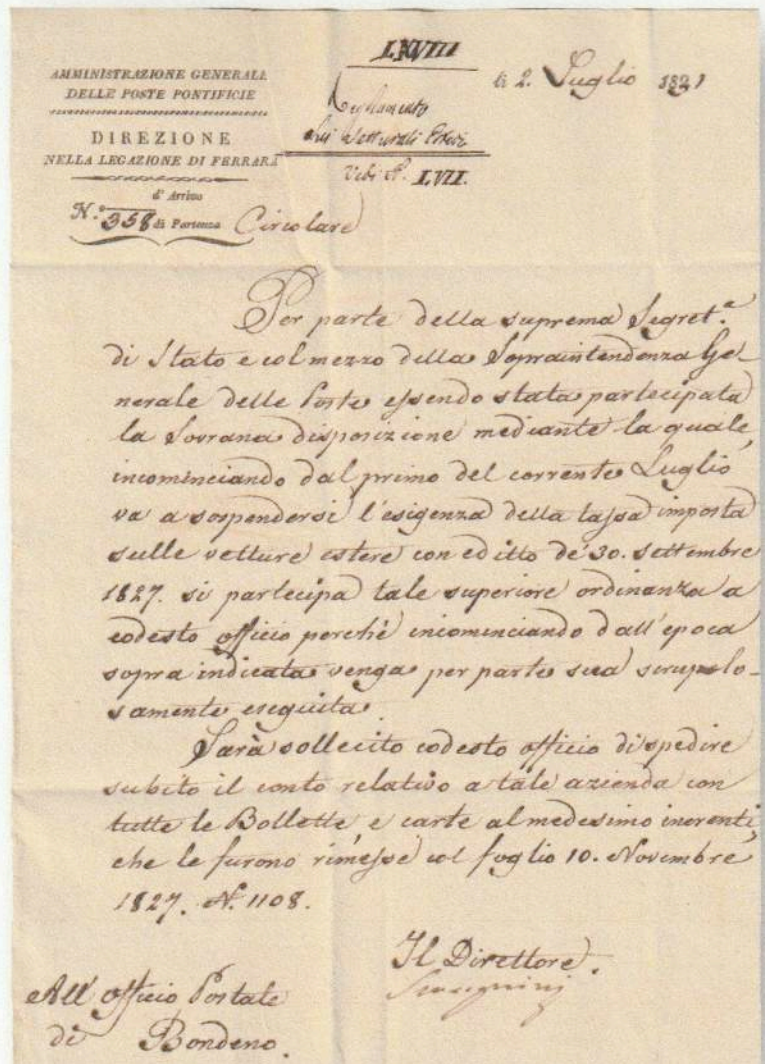 LXVIII
li 2. Luglio 1831
AMMINISTRAZIONE GENERALE
DELLE POSTE PONTIFICIE
DIREZIONE
NELLA LEGAZIONE DI FERRARA
Regolamento
sui Vetturali Esteri
Vedi N. LVII.
d' Arrivo
N.° 358 di Partenza Circolare
Per parte della suprema Segret.ª
di Stato e col mezzo della Sopraintendenza Ge-
nerale delle Poste essendo stata partecipata
la Sovrana disposizione mediante la quale,
incominciando dal primo del corrente Luglio
va a sospendersi l'esigenza della tassa imposta
sulle vetture estere con editto de' 30. settembre
1827. si partecipa tale superiore ordinanza a
codesto officio perchè incominciando dall'epoca
sopra indicata venga per parte sua scrupolo-
samente eseguita.
Sarà sollecito codesto officio di spedire
subito il conto relativo a tale azienda con
tutte le Bollette, e carte al medesimo inerenti,
che le furono rimesse col foglio 10. Novembre
1827. N. 1108.
Il Direttore.
All' officio Postale
di Bondeno.